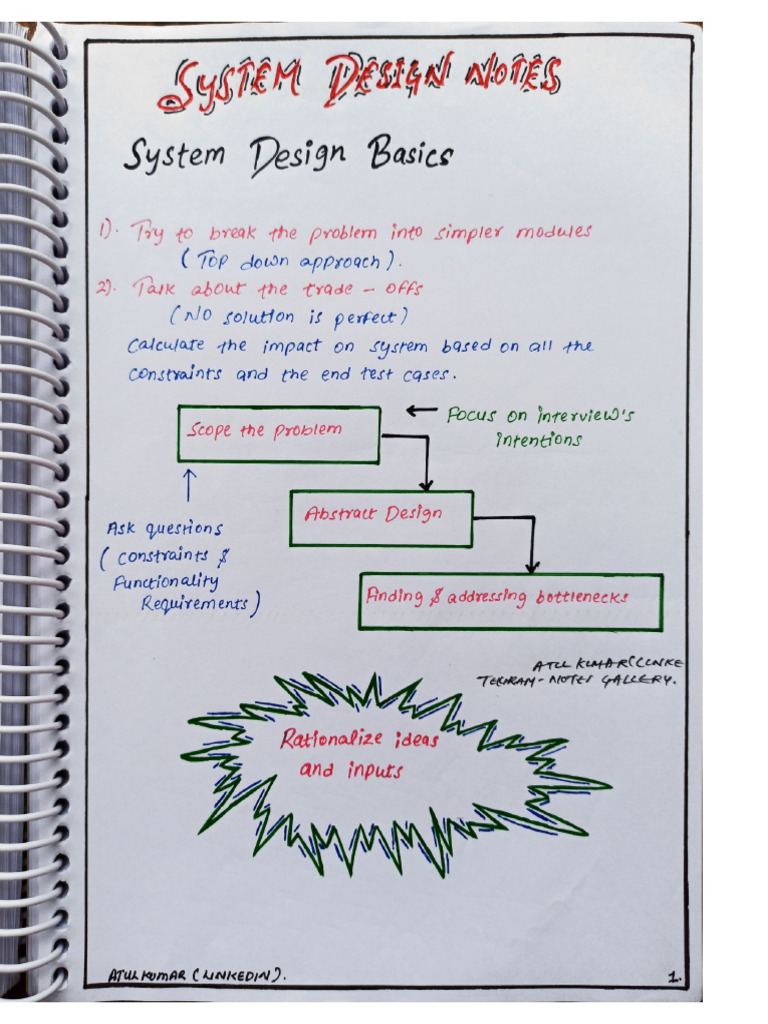 SYSTEM DESIGN NOTES
System Design Basics
1). Try to break the problem into simpler modules
(Top down approach).
2). Talk about the trade - offs
(No solution is perfect)
Calculate the impact on system based on all the
constraints and the end test cases.
← Focus on interview's
intentions
Scope the problem
Abstract Design
Ask questions
(Constraints &
Functionality
Requirements)
Finding & addressing bottlenecks
ATUL KUMAR (LINKE
NOTES GALLERY.
Rationalize ideas
and inputs
ATUL KUMAR (LINKEDIN).
1.